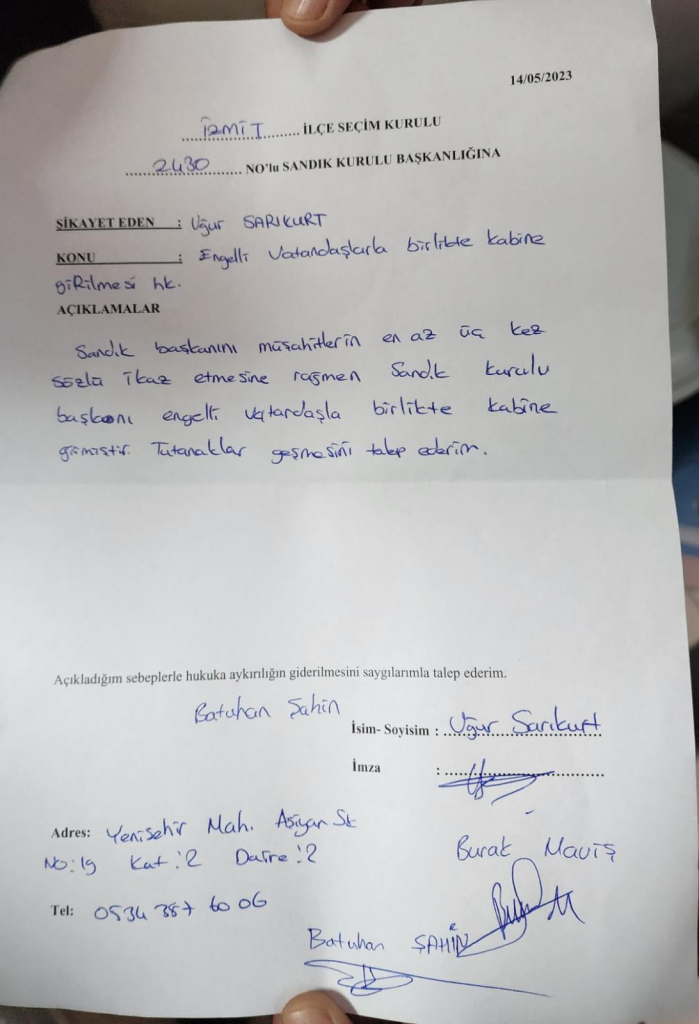 14/05/2023
İZMİT İLÇE SEÇİM KURULU
2430 NO'lu SANDIK KURULU BAŞKANLIĞINA
ŞİKAYET EDEN : Uğur SARIKURT
KONU : Engelli Vatandaşlarla birlikte kabine
giRilmesi hk.
AÇIKLAMALAR
Sandık başkanını müşahitlerin en az üç kez
sözlü ikaz etmesine rağmen Sandık kurulu
başkanı engelli vatandaşla birlikte kabine
girmiştir. Tutanaklar geşmesini talep ederim.
Açıkladığım sebeplerle hukuka aykırılığın giderilmesini saygılarımla talep ederim.
Batuhan Şahin
İsim- Soyisim : Uğur Sarıkurt
İmza :
Adres: Yenişehir Mah. Aşiyan Sk
No: 19 Kat: 2 Daire: 2
Burak Maviş
Tel: 0534 387 60 06
Batuhan ŞAHİN